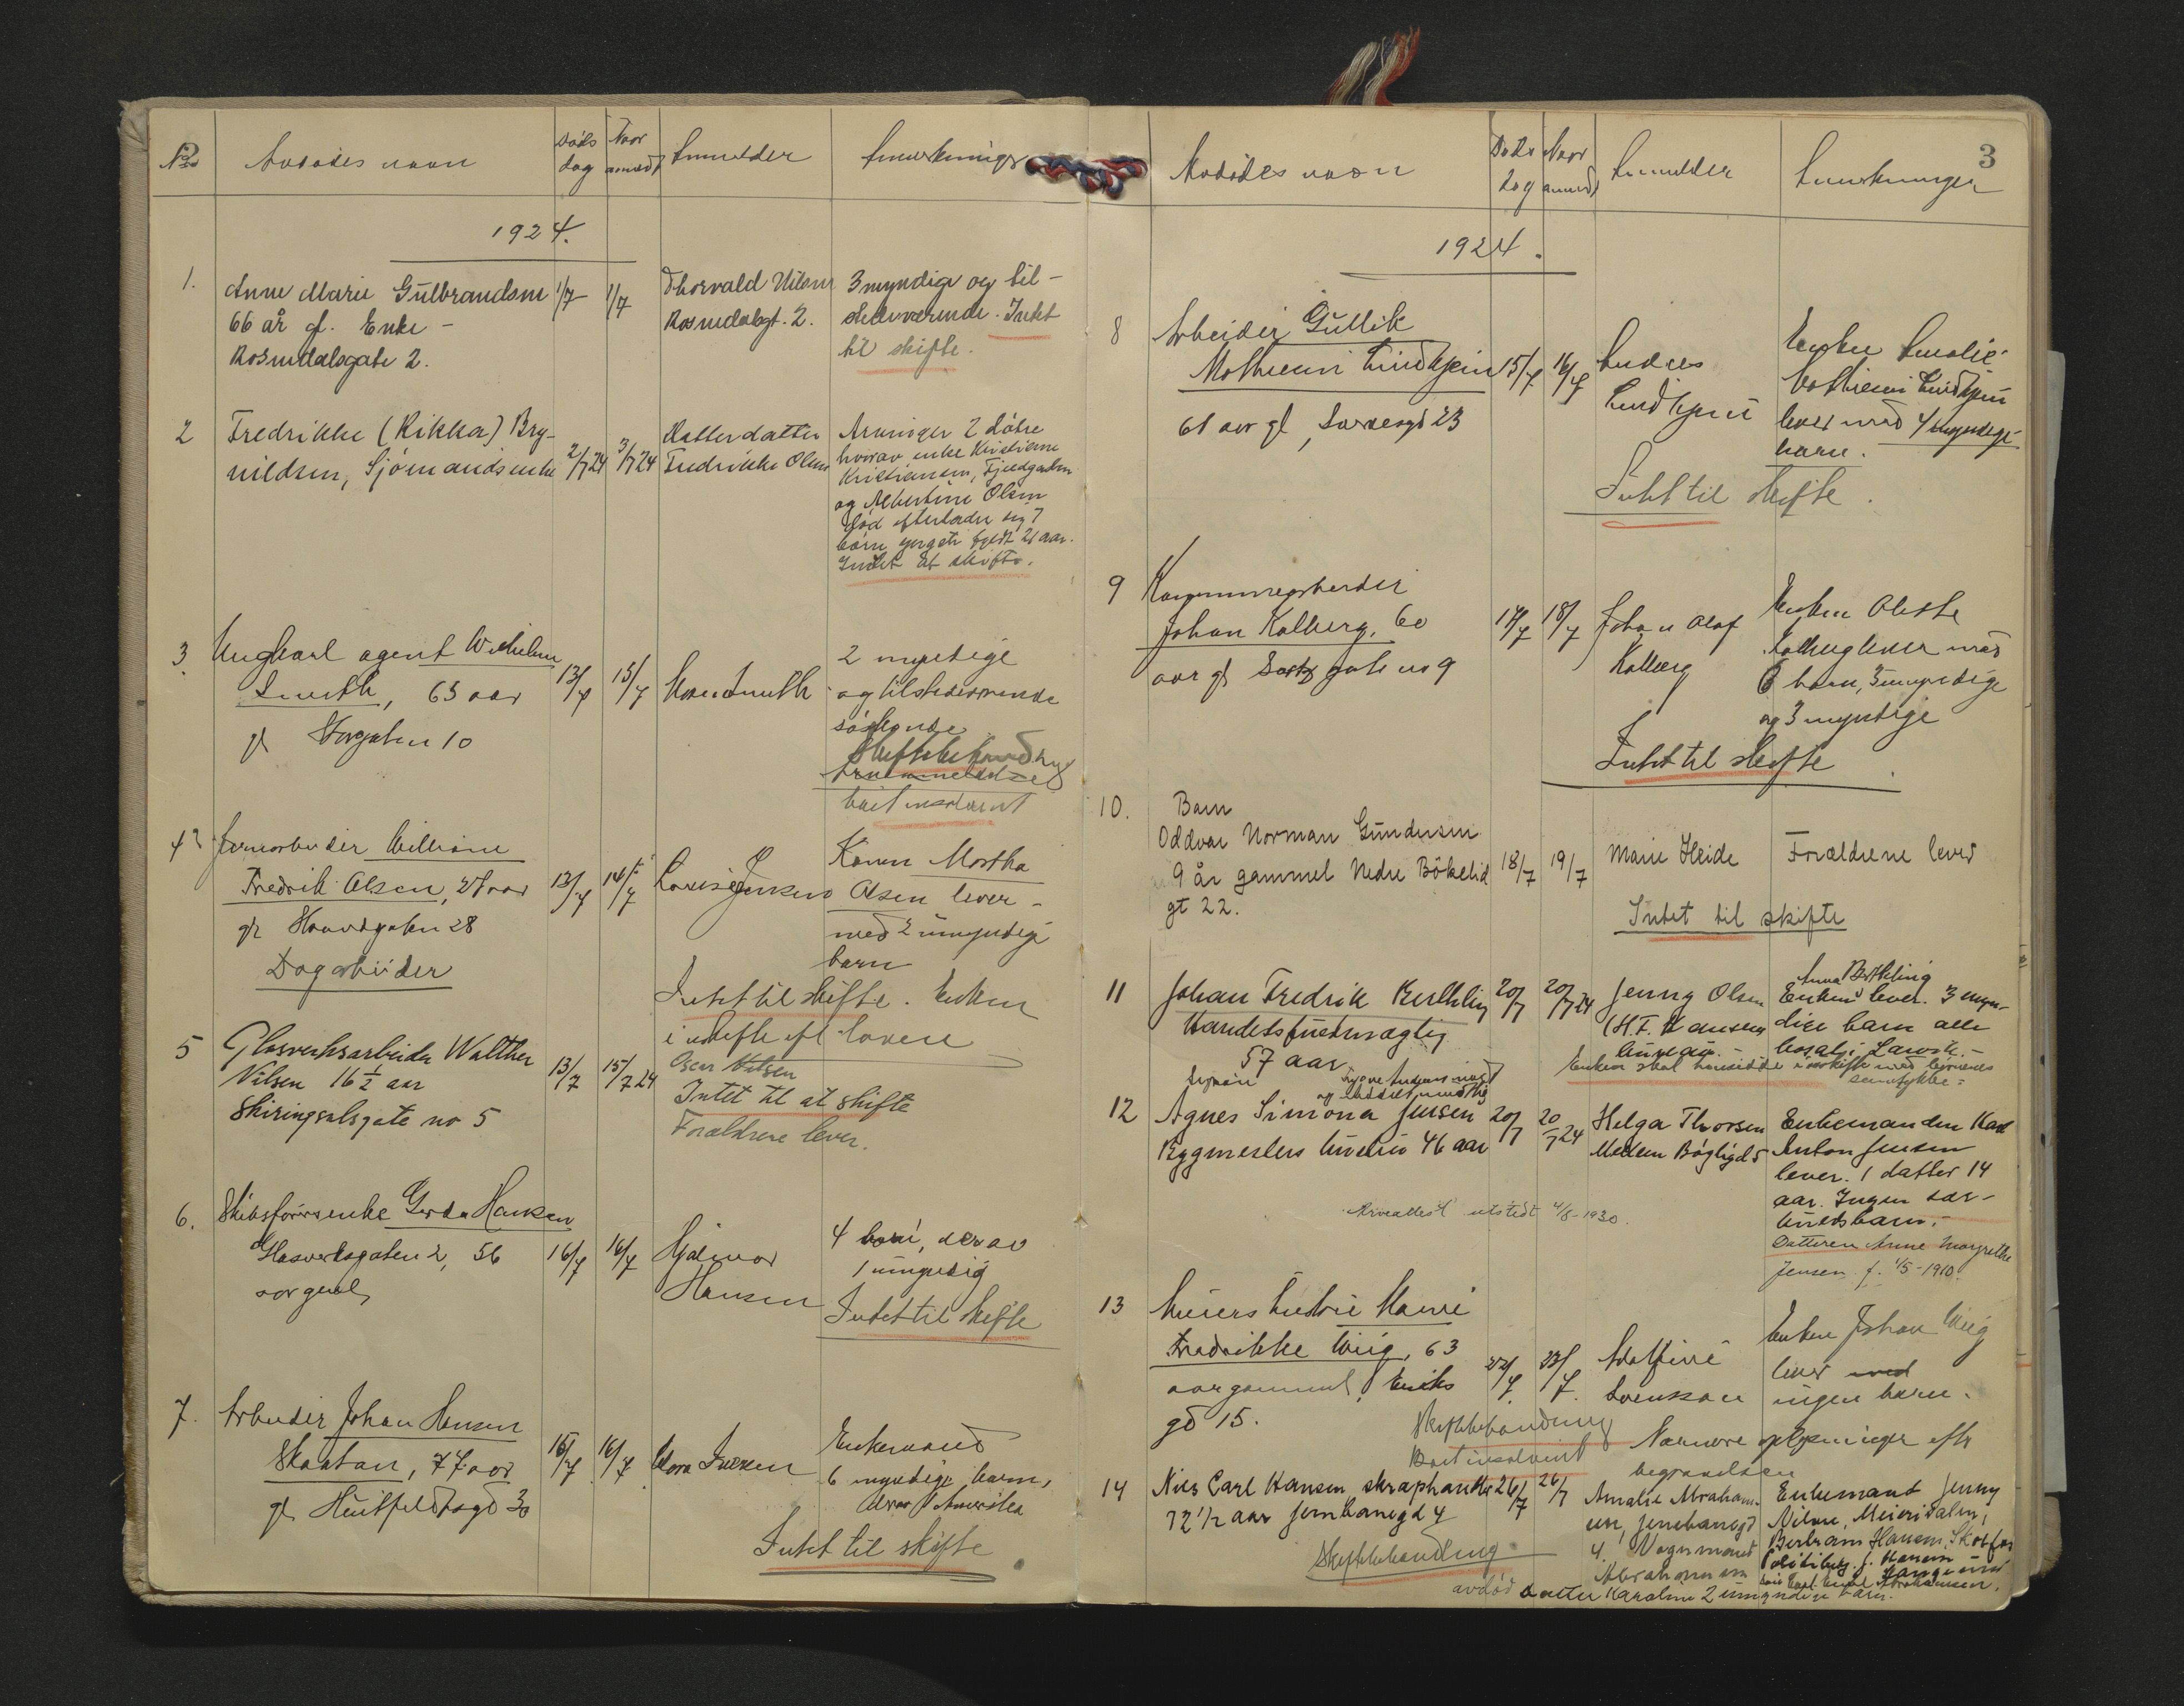 No
Avdödes navn
Döds dag
Naar anmeldt
Anmelder
Anmerkninger
1924.
1. Anne Marie Gülbrandsen 1/7 1/7 Thorvald Nilsen 3 myndige og til-
66 år gl. Enke - Rosendalsgt. 2. stedeværende. Intet
Rosendalsgate 2. til skifte.
2 Fredrikke (Rikka) Bry- 2/7 24 3/7 24 Datterdatter Arvinger 2 døtre
nildsen, Sjömandsenke Fredrikke Olsen hvorav enke Kristiane
Kristiansen, Fjeldgaden
og Albertine Olsen
död efterlader sig 7
börn yngste fyldt 21 aar.
Intet at skifte.
3. Ungkarl agent Wilhelm 2 myndige
Smith, 63 aar 13/7 15/7 Smith og tilstedeværende
gl Storgaten 10 söskende
Skiftebehandling
boet insolvent
4 Jernarbeider William Karen Martha
Fredrik Olsen, 27 aar 13/7 14/7 Lovise Jensen Olsen lever
gl Havnegaten 28 med 2 umyndige
Dagarbeider barn
Intet til skifte. Enken
i uskifte eft loven
5 Glasverksarbeider Walther 13/7 15/7 24 Oscar Nilsen
Nilsen 16 1/2 aar Intet til at skifte
Skiringsalsgate no 5 Forældrene lever.
6. Skibsförersenke Gerda Hansen 4 barn, derav
Glasverksgaten 2, 56 16/7 16/7 Hjalmar 1 umyndig
aar gl Hansen Intet til skifte
7. Arbeider Johan Hansen Enkemand
Skaatan, 77 aar 15/7 16/7 6 myndige barn,
gl Huitfeldtsgd 30 derav 1 Amerika
Intet til skifte
3
Avdödes navn
Döds dag
Naar anmeldt
Anmelder
Anmerkninger
1924.
8 Arbeider Gullik Enken Amalie
Mathisen Lindkjen 15/7 16/7 Andreas Mathisen Lindkjen
61 aar gl, 23 Lindkjen lever med 4 myndige
barn.
Intet til skifte.
9
Johan Kalberg, 60 17/7 18/7 Johan Olaf Enken
aar gl gate no 9 Kalberg Kalberg lever med
6 barn, 3 umyndige
og 3 myndige
Intet til skifte
10. Barn
Oddvar Norman Gündersen
9 år gammel Nedre Bökelid 18/7 19/7 Marie Heide Forældrene lever
gt 22.
Intet til skifte
11 Johan Fredrik Berthling 20/7 20/7 24 Jenny Olsen Anna Berthling
Handelsfuldmægtig (H.F. Hansens Enken lever. 3 myn-
57 aar büreau. - dige barn alle
bosat i Larvik. -
Enken skal hensidde i uskifte med börnenes
samtykke:
12 Agnes Simona Jensen 20/7 20/7 24 Helga Thorsen Enkemanden Karl
Bygmesters hustru 46 aar Mellem Bögligd 5 Anton Jensen
lever. 1 datter 14
aar. Ingen sær-
kuldsbarn. -
Arveattest utstedt 4/8-1930. Datteren Anne Margrethe
Jensen f. 1/5-1910.
13 Murers hustru Marie Enkem Johan Wiig
Fredrikke Wiig, 63 22/7 23/7 Adolfine lever med
aar gammel, Eriks Svensson ingen barn.
gd 15.
Skiftebehandling Nærmere oplysninger efter
Boet insolvent begravelsen
14 Nils Carl Hansen, skraphandler 26/7 26/7 Amalie Abraham- Enkemand Jenny
72 1/2 aar Jernbanegd 4 sen, Jernbanegd Nilsen, Meierisalen,
4. Vognmand Bertram Hansen, Skotfos
Skiftebehandling Abrahamsen
avdöd datter Karoline 2 umyndige barn.